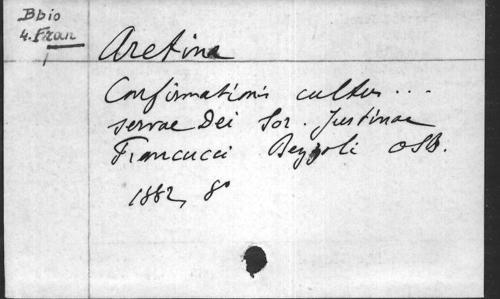 Bbio
4. Fran
1
Aretina
Confirmationis cultus ...
servae Dei Sor. Justinae
Francucci Bezzoli OSB.
1882, 8°